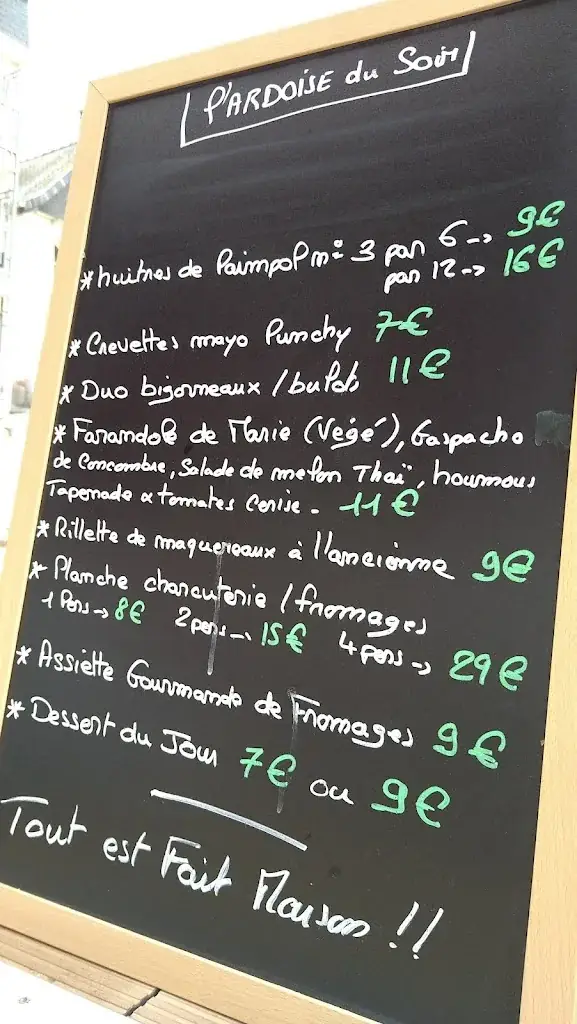 l'ARDOISE du Soir
* huitres de Paimpol n° 3 par 6 -> 9€
par 12 -> 16€
* Crevettes mayo Punchy 7€
* Duo bigorneaux / bulots 11€
* Farandole de Marie (Végé), Gaspacho
de Concombre, Salade de melon Thaï, houmous
Tapenade & tomates Cerise - 11€
* Rillette de maquereaux à l'ancienne 9€
* Planche charcuterie / fromages
1 Pers -> 8€ 2 pers -> 15€ 4 pers -> 29€
* Assiette Gourmande de Fromages 9€
* Dessert du Jour 7€ ou 9€
Tout est Fait Maison !!